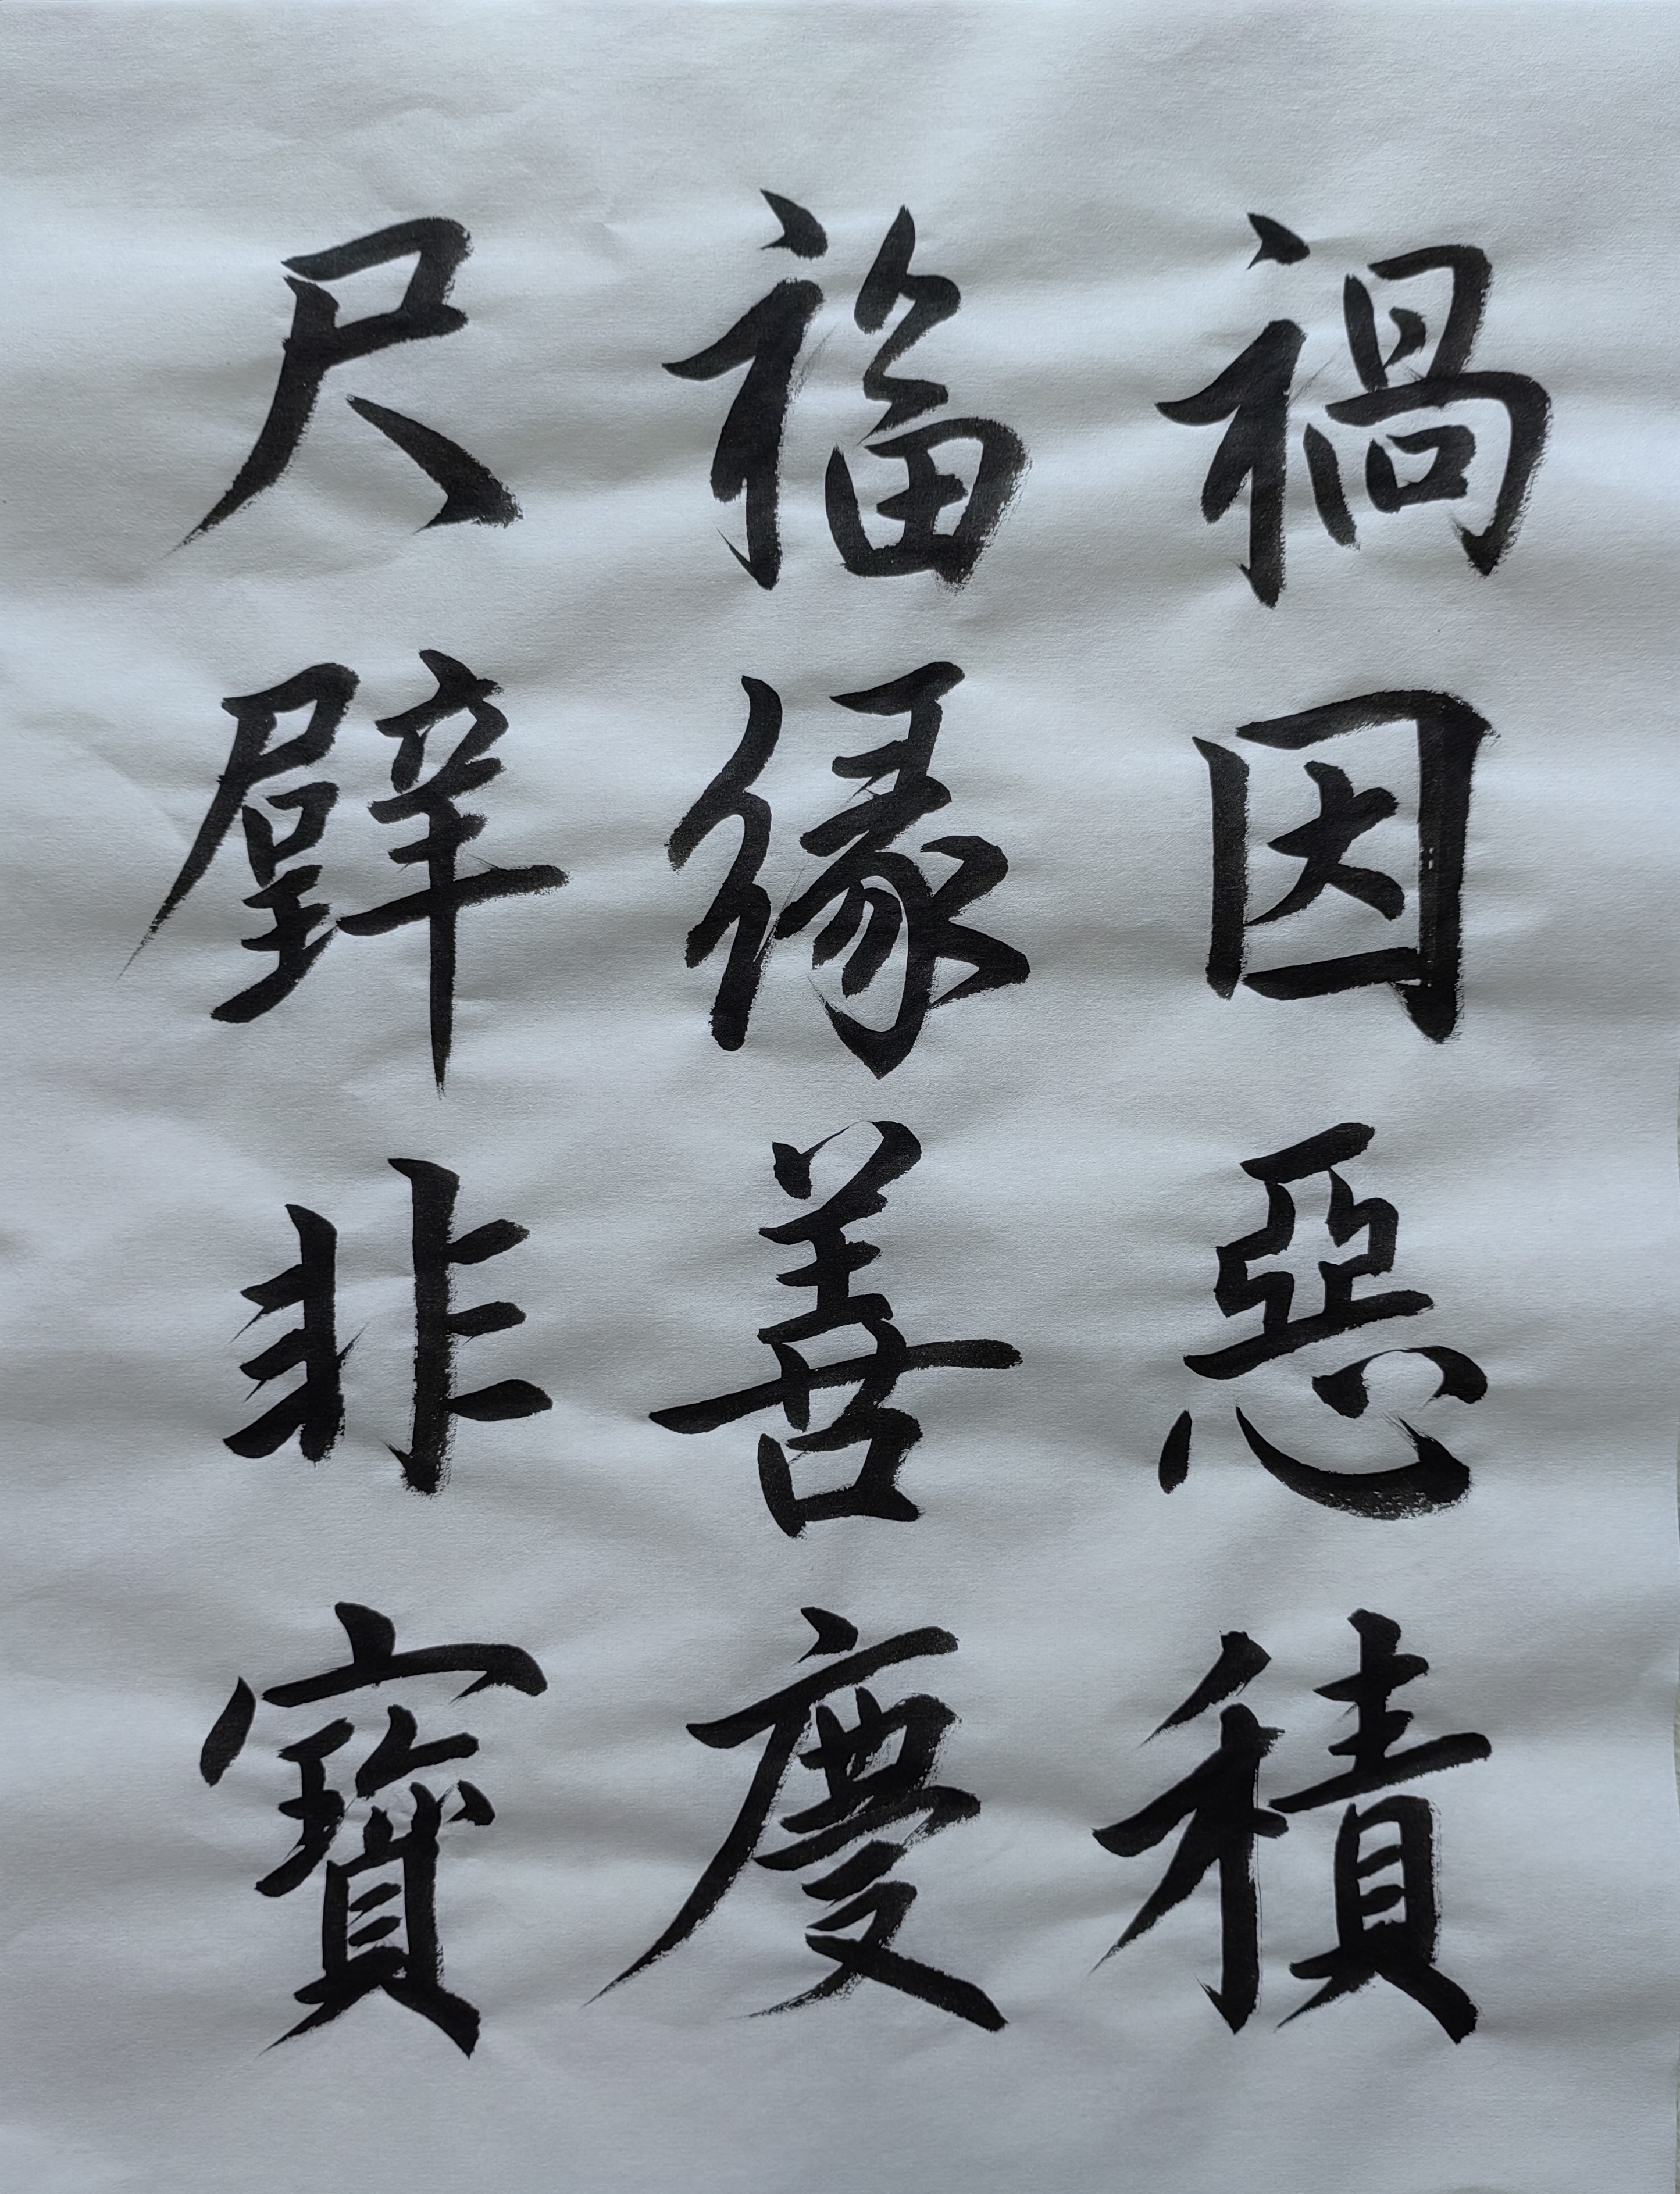 禍因惡積
福緣善慶
尺璧非寶